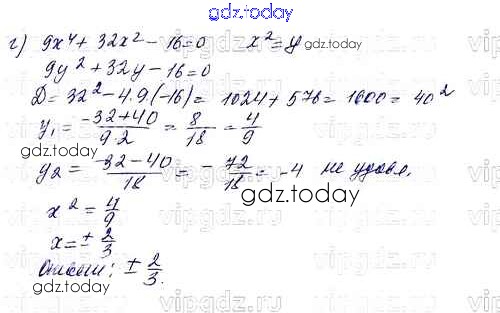 г) 9x⁴ + 32x² - 16 = 0   x² = y
gdz.today
9y² + 32y - 16 = 0
D = 32² - 4·9(-16) = 1024 + 576 = 1600 = 40²
y₁ = (-32+40)/(9·2) = 8/18 = 4/9
gdz.today
y₂ = (-32-40)/18 = -72/18 = -4 не удовл.
gdz.today
x² = 4/9
x = ± 2/3
gdz.today
Ответ: ± 2/3.
gdz.today
vipgdz.ru